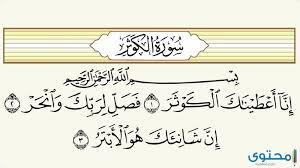 سُورَةُ الْكَوْثَرِ
بِسْمِ اللَّهِ الرَّحْمَٰنِ الرَّحِيمِ
إِنَّا أَعْطَيْنَاكَ الْكَوْثَرَ ١ فَصَلِّ لِرَبِّكَ وَانْحَرْ ٢
إِنَّ شَانِئَكَ هُوَ الْأَبْتَرُ ٣
محتوى